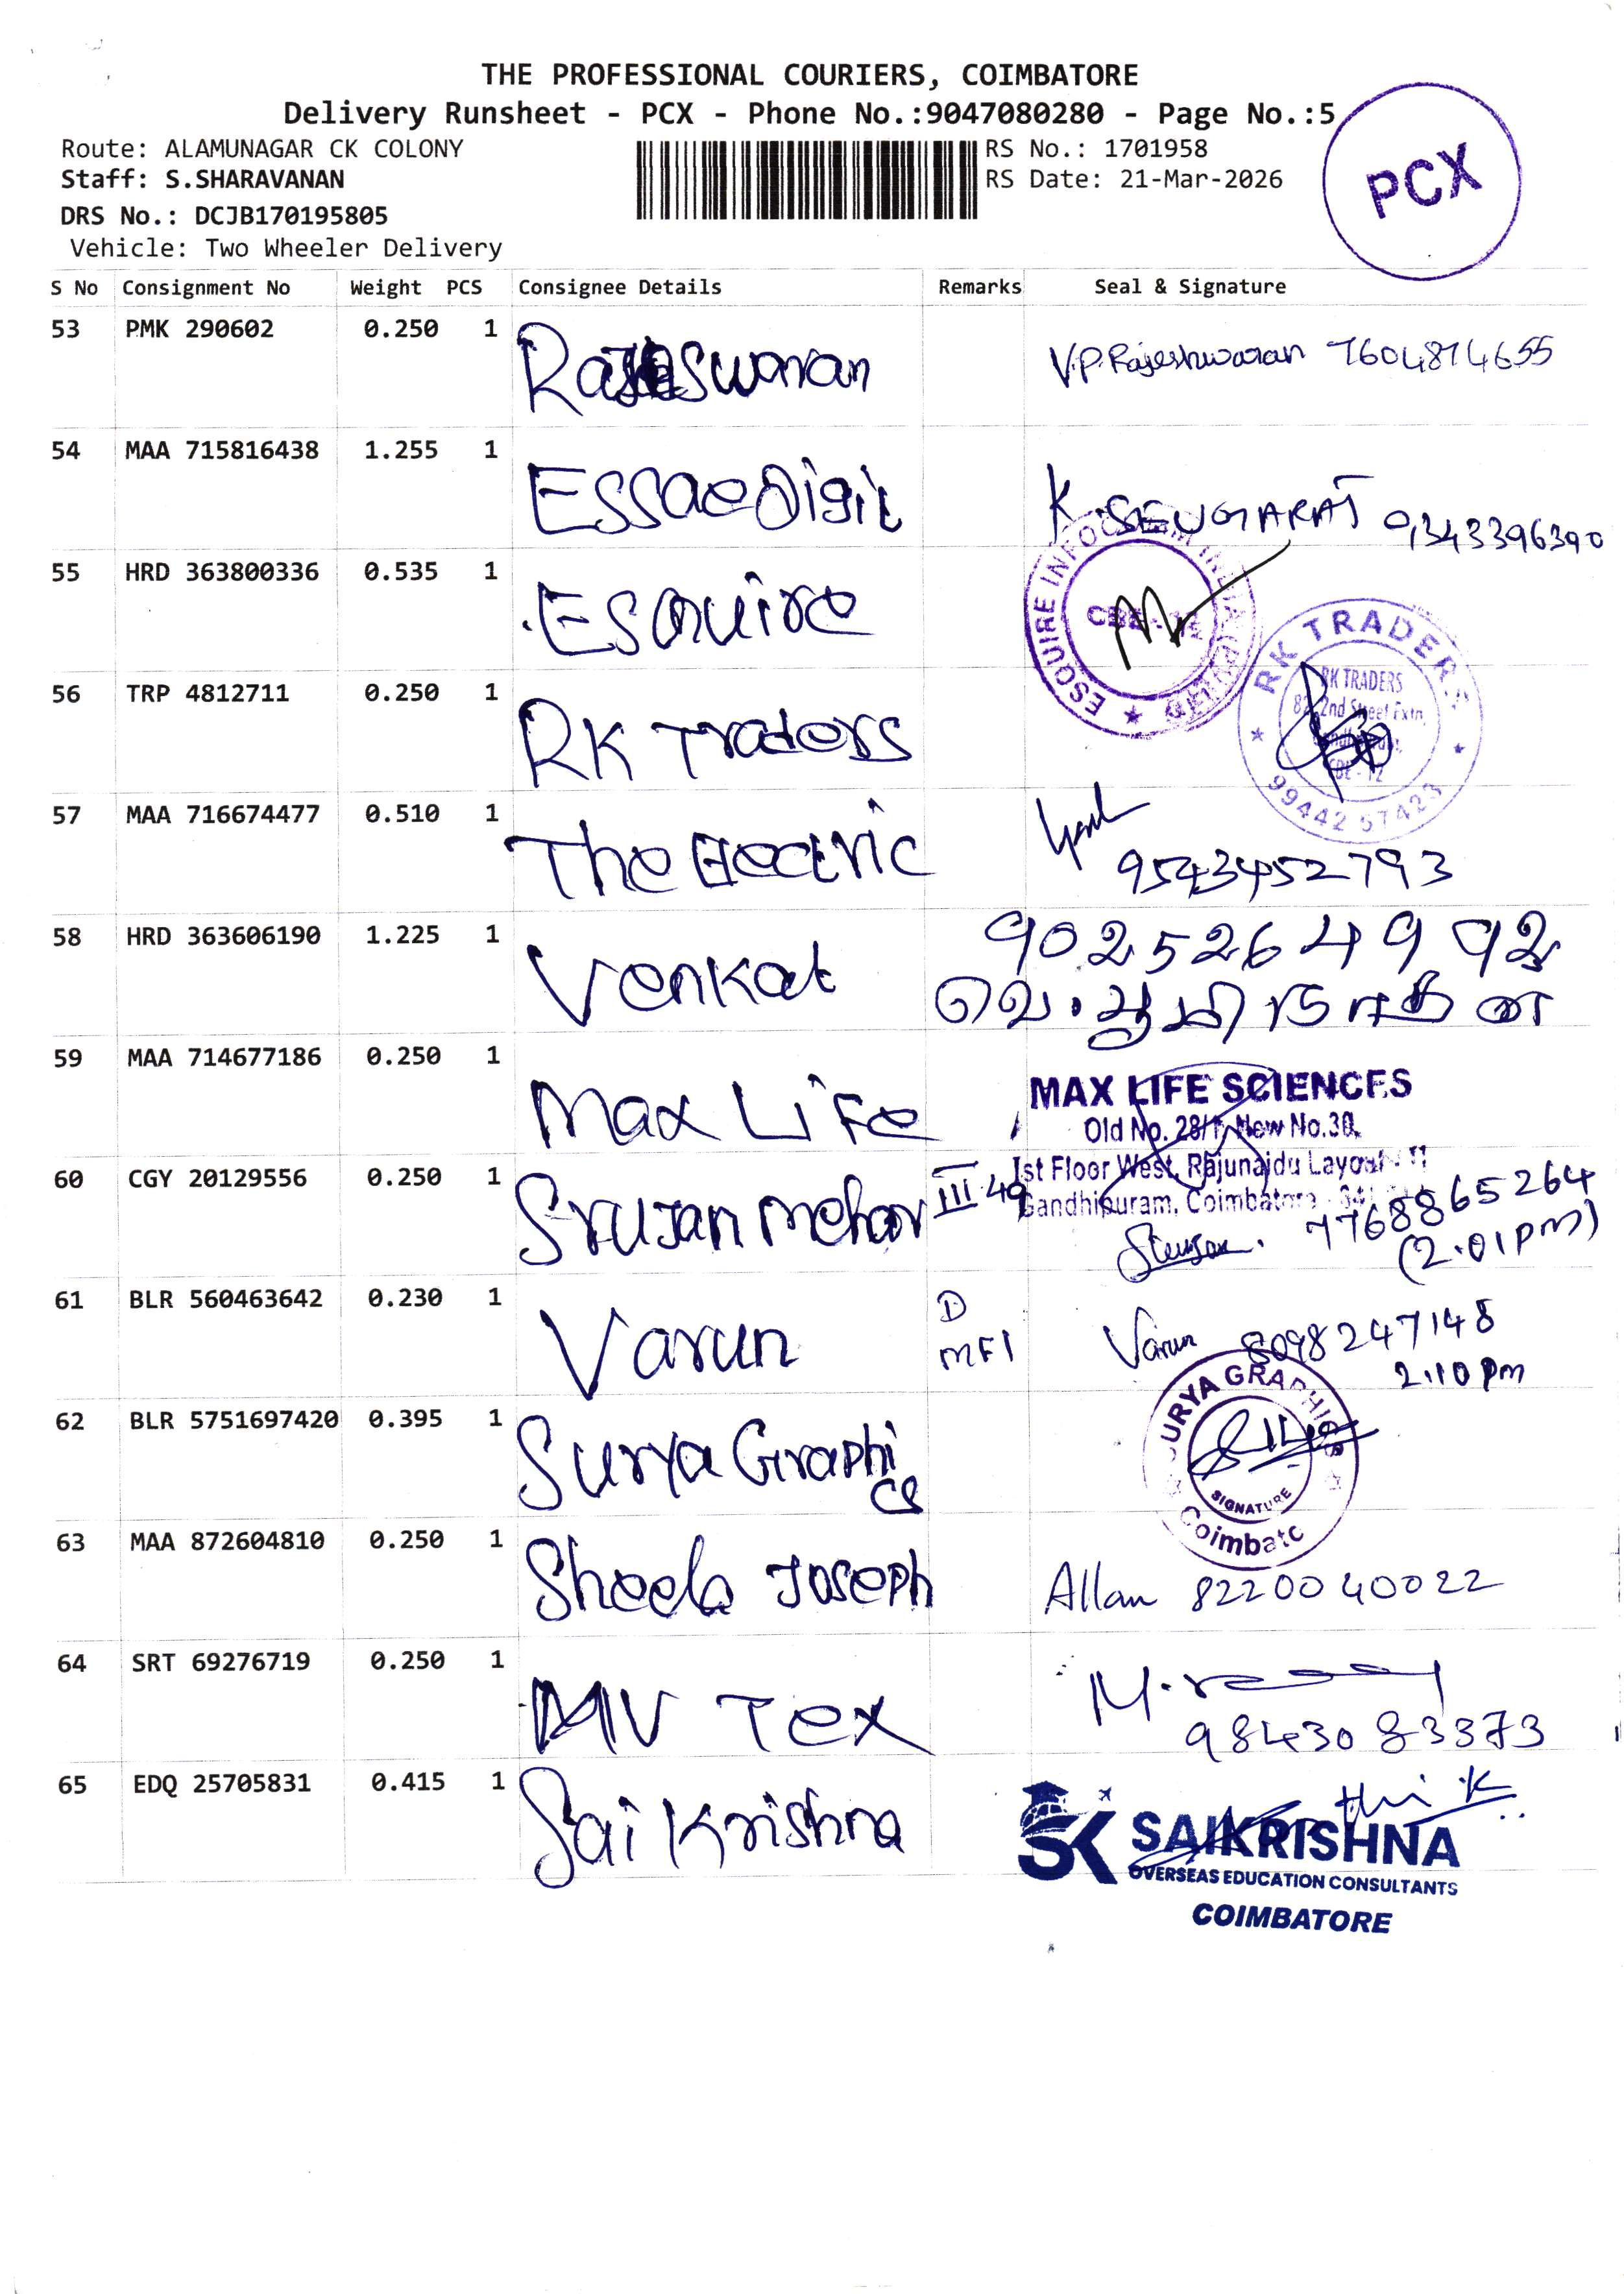 THE PROFESSIONAL COURIERS, COIMBATORE
Delivery Runsheet - PCX - Phone No.:9047080280 - Page No.:5
PCX
Route: ALAMUNAGAR CK COLONY
RS No.: 1701958
Staff: S.SHARAVANAN
RS Date: 21-Mar-2026
DRS No.: DCJB170195805
Vehicle: Two Wheeler Delivery
S No Consignment No Weight PCS Consignee Details Remarks Seal & Signature
53 PMK 290602 0.250 1 Rajeswaran V.P.Rajeshwaran 7604814655
54 MAA 715816438 1.255 1 Essae Digit K. 9343396390
55 HRD 363800336 0.535 1 Esquire
ESQUIRE
56 TRP 4812711 0.250 1 RK Traders
RK TRADERS
RK TRADERS
82, 2nd Street Extn,
CBE - 12
99442 57423
57 MAA 716674477 0.510 1 The Electric
9543452793
58 HRD 363606190 1.225 1 Venkat 9025264992
59 MAA 714677186 0.250 1 Max Life
MAX LIFE SCIENCES
Old No. 28/1, New No.30,
Ist Floor West, Rajunaidu Layout
Gandhipuram, Coimbatore
60 CGY 20129556 0.250 1 Srujan Mehar III-49
7768865264
(2.01pm)
61 BLR 560463642 0.230 1 Varun D
MFI
Varun 8098247148
2.10 pm
62 BLR 5751697420 0.395 1 Surya Graphi
cs
SURYA GRAPHICS
SIGNATURE
Coimbato
63 MAA 872604810 0.250 1 Sheela Joseph Allan 8220040022
64 SRT 69276719 0.250 1 MV Tex
9843083373
65 EDQ 25705831 0.415 1 Sai Krishna
SK SAIKRISHNA
OVERSEAS EDUCATION CONSULTANTS
COIMBATORE